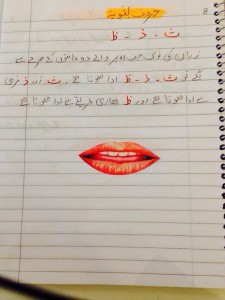 حروف لثویہ
ث - ذ - ظ
زبان کی نوک جب اوپر والے دو دانتوں کے سرے سے
لگے تو ث - ذ - ظ ادا ہوتا ہے - ث اور ذ نرمی
سے ادا ہوتا ہے اور ظ بھاری طریقے سے ادا ہوتا ہے